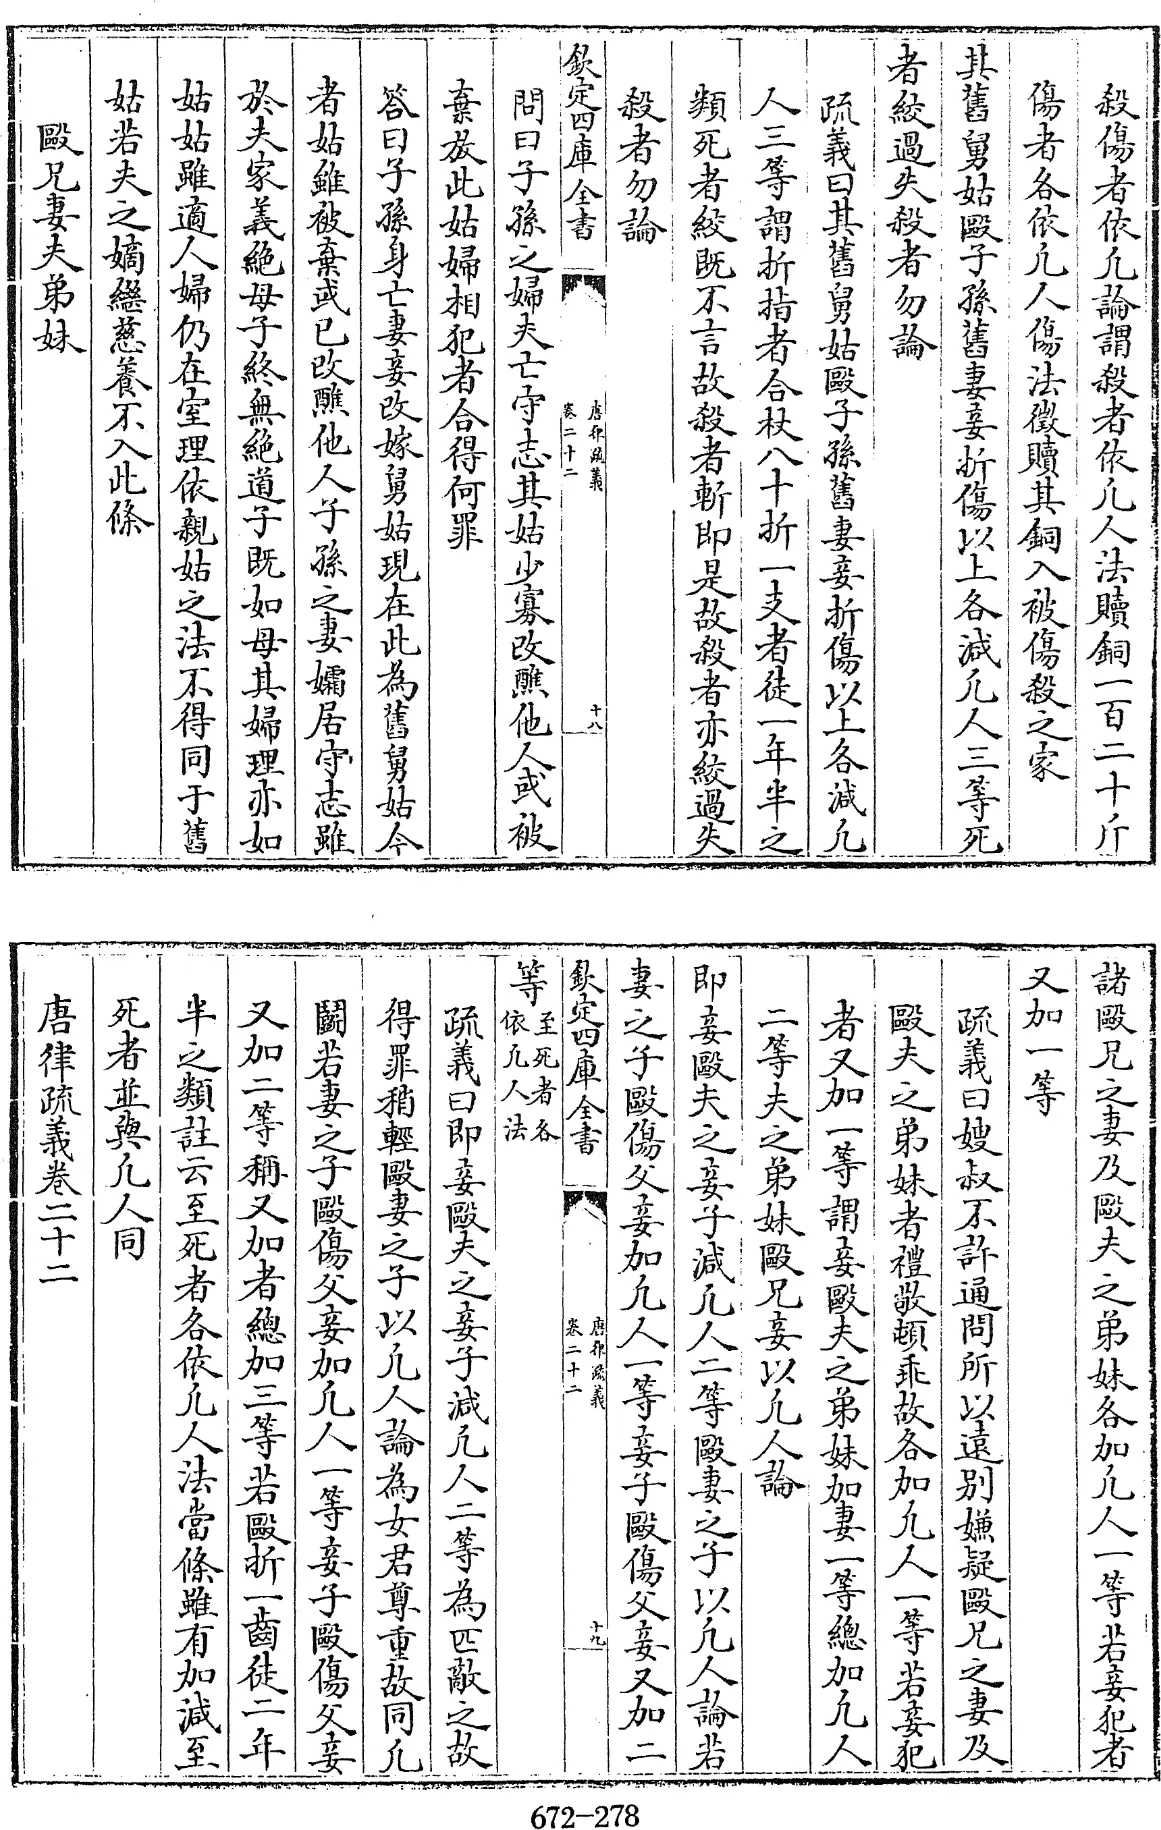 殺傷者依凡論謂殺者依凡人法贖銅一百二十斤
傷者各依凡人傷法徵贖其銅入被傷殺之家
其舊舅姑毆子孫舊妻妾折傷以上各減凡人三等死
者絞過失殺者勿論
疏義曰其舊舅姑毆子孫舊妻妾折傷以上各減凡
人三等謂折指者合杖八十折一支者徒一年半之
類死者絞既不言故殺者斬即是故殺者亦絞過失
殺者勿論
欽定四庫全書
唐律疏義
卷二十二
十八
問曰子孫之婦夫亡守志其姑少寡改醮他人或被
棄放此姑婦相犯者合得何罪
答曰子孫身亡妻妾改嫁舅姑現在此為舊舅姑今
者姑雖被棄或已改醮他人子孫之妻孀居守志雖
於夫家義絕母子終無絕道子既如母其婦理亦如
姑姑雖適人婦仍在室理依親姑之法不得同于舊
姑若夫之嫡繼慈養不入此條
毆兄妻夫弟妹
諸毆兄之妻及毆夫之弟妹各加凡人一等若妾犯者
又加一等
疏義曰嫂叔不許通問所以遠別嫌疑毆兄之妻及
毆夫之弟妹者禮敬頓乖故各加凡人一等若妾犯
者又加一等謂妾毆夫之弟妹加妻一等總加凡人
二等夫之弟妹毆兄妾以凡人論
即妾毆夫之妾子減凡人二等毆妻之子以凡人論若
妻之子毆傷父妾加凡人一等妾子毆傷父妾又加二
欽定四庫全書
唐律疏義
卷二十二
十九
等至死者各
依凡人法
疏義曰即妾毆夫之妾子減凡人二等為匹敵之故
得罪稍輕毆妻之子以凡人論為女君尊重故同凡
鬭若妻之子毆傷父妾加凡人一等妾子毆傷父妾
又加二等稱又加者總加三等若毆折一齒徒二年
半之類註云至死者各依凡人法當條雖有加減至
死者並與凡人同
唐律疏義卷二十二
672-278